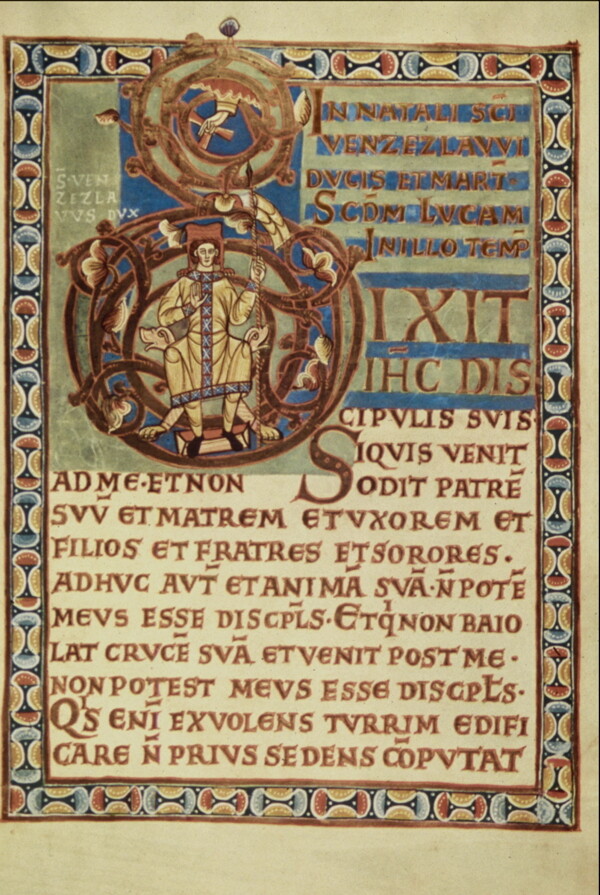 S̄·VEN
ZEZLA
VVS DVX
IN NATALI SC̄I
VENZEZLAVVI
DVCIS ET MART̄·
SC̄DM̄ LVCAM
IN ILLO TEMP̄
DIXIT
IH̄C DIS
CIPVLIS SVIS·
SIQVIS VENIT
AD ME·ET NON ODIT PATRĒ
SVV̄ ET MATREM ET VXOREM ET
FILIOS ET FRATRES ET SORORES·
ADHVC AVT̄ ET ANIMĀ SVĀ·N̄ POTĒ
MEVS ESSE DISCPL̄S·ET Q̄I NON BAIO
LAT CRVCĒ SVĀ ET VENIT POST ME·
NON POTEST MEVS ESSE DISCPL̄S·
QĪS ENĪ EX VOLENS TVRRIM EDIFI
CARE N̄ PRIVS SEDENS CŌPVTAT